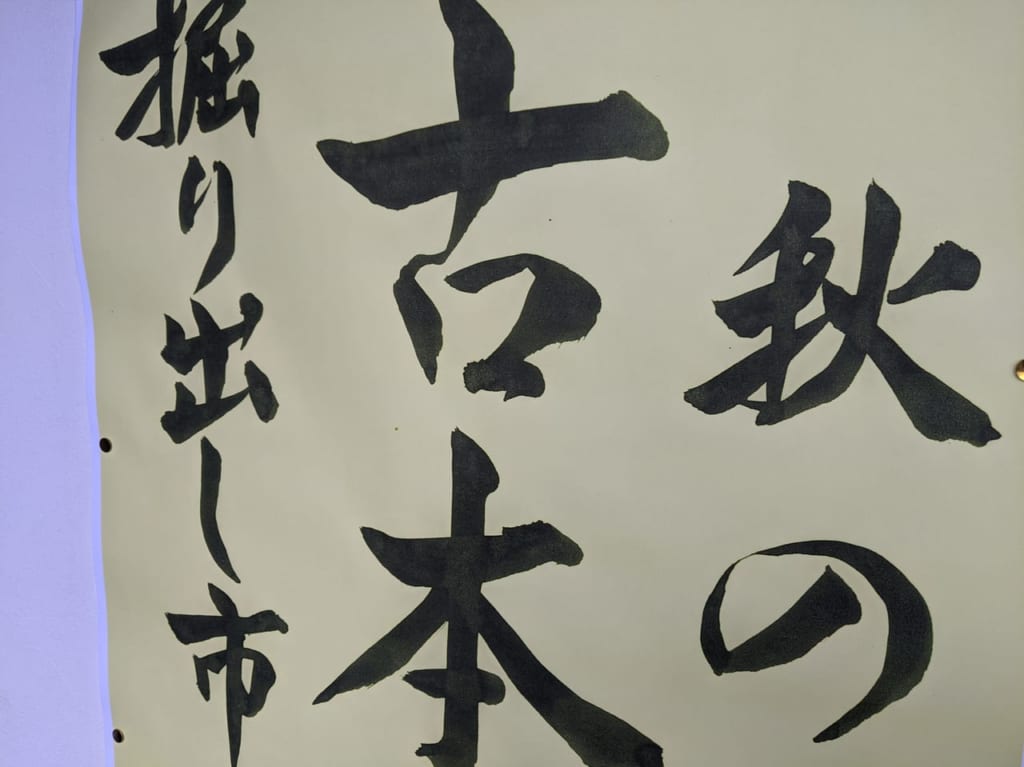 秋の
古本
掘り出し市